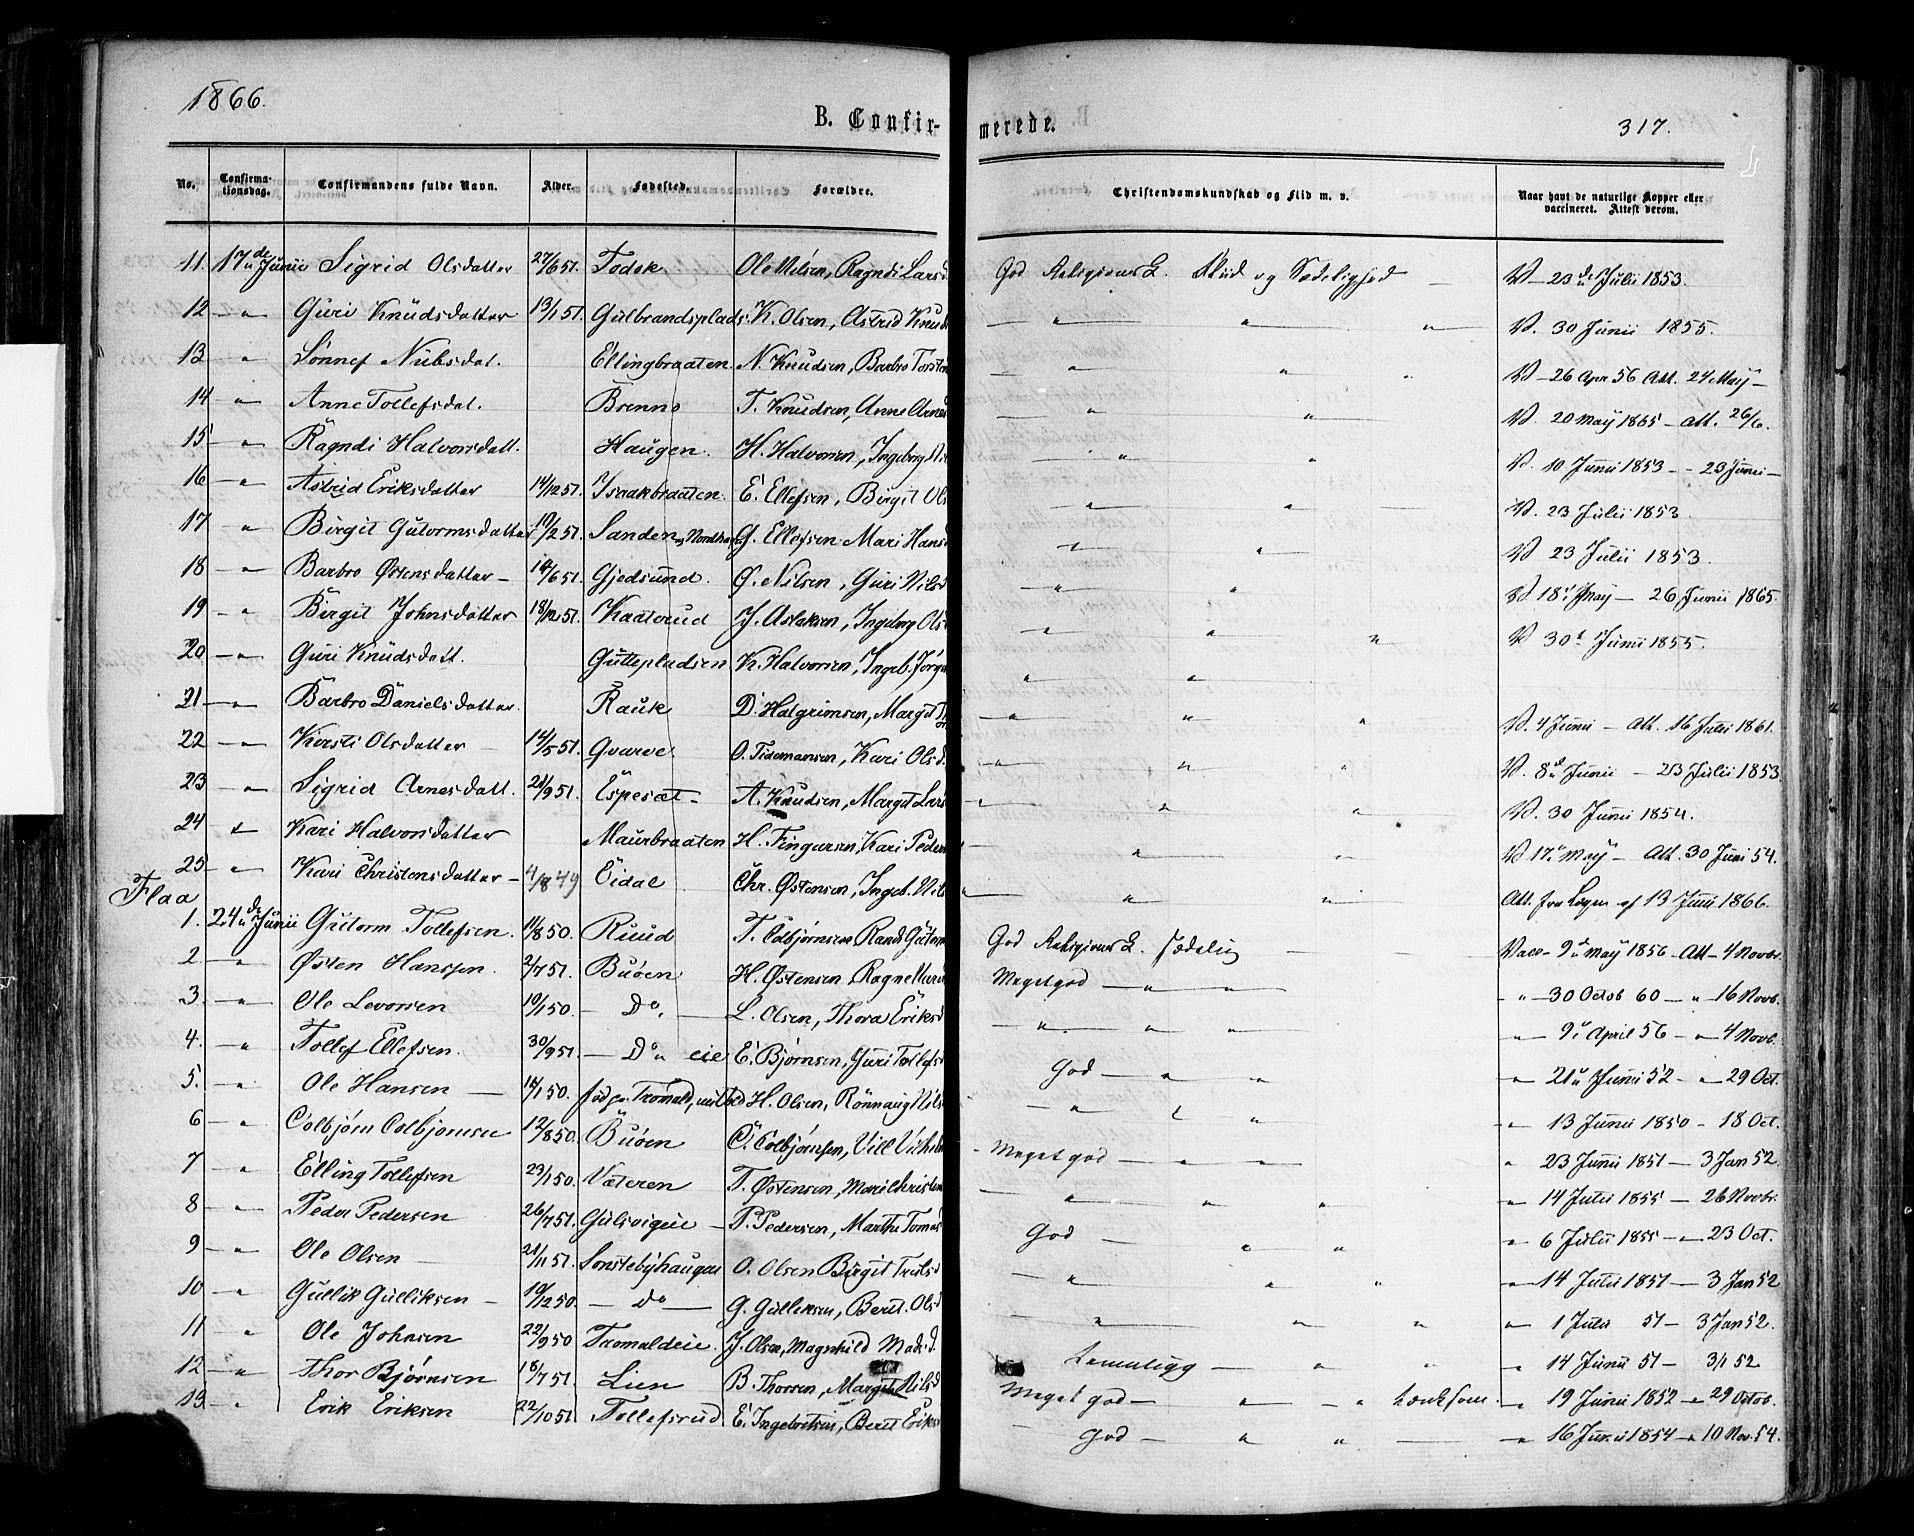 1866.
B. Confir-
merede.
317.
No. Confirma-tionsdag. Confirmandens fulde Navn. Alder. Fødested. Forældre. Christendomskundskab og Flid m. v. Naar havt de naturlige Kopper eller vaccineret. Attest derom.
11. 17de Junii Sigrid Olsdatter 27/6 51. Todok Ole Nilsen, Ragndi Larsd God Religions K. Flid og Sædelighed V - 23de Julii 1853.
12 - " Guri Knudsdatter 13/1 51. Gulbrandsplads. K. Olsen, Astrid Knud " " " V. 30 Junii 1855.
13 " Sønnef Nubsdat. Ellingbraaten. N. Knudsen, Barbro Torsten " " " V - 26 Apr 56 Att. 24 May -
14 " Anne Tollefsdat. Brenno T. Knudsen, Anne Arnes " " V. 20 May 1865 - Att. 26/6.
15 - " Ragndi Halvorsdatt. Haugen. H. Halvorsen, Ingeborg Nil " " V. 10 Junii 1853 - - 23 Junii -
16 - " Astrid Eriksdatter 14/12 51. Isaakbraaten. E. Ellefsen, Birgit Ols " " V. 23 Julii 1853.
17 " Birgit Gutormsdatter 19/2 51. Sanden G. Ellefsen Mari Hansd " " V 23 Julii 1853.
18 - " Barbro Østensdatter - 14/6 51. Gjedsund. Ø. Nilsen, Guri Nilsd " " V 18 May - 26 Junii 1865.
19 - " Birgit Johnsdatter 18/12 51. Kaaterud J. Aslaksen, Ingeborg Ols " " " V 30t Junii 1855.
20 - " Guri Knudsdatt. Guttepladsen K. Halvorsen, Ingeb. Jørg " "
21 - " Barbro Danielsdatter. Rauk D. Halgrimsen, Margit " " " V. 4 Junii - Att. 16 Julii 1861.
22 - " Kirsti Olsdatter 14/5 51. Gvarve O. Tidemansen, Kari Olsd. " " " V. 8de Junii - 23 Julii 1853
23 - " Sigrid Arnesdatt. 21/9 51. Espesæt - A. Knudsen, Margit Lars " " V. 30 Junii 1854.
24 Kari Halvorsdatter Maurbraaten H. Fingarsen, Kari Peders " " V 17 May - Att. 30 Juni 54.
25 - " Kari Christensdatter - 4/8 49 Eidal Chr. Østensen, Ingeb. Nil " " Att. fra Lægen af 13 Junii 1866.
Flaa
1. 24de Junii Gutorm Tollefsen. 11/8 50. Ruud T. Colbjørnsen Randi Gutorm God Religions K. sædelig Vacc - 9 May 1856 - Att - 4 Novbr.
2 - " Østen Hanssen. 2/7 51. Buøen H. Østensen, Ragne Meget god - " - " - " - 30 Octob 60 - " 16 Novb.
3 - " Ole Levorsen 10/1 50. - Do, - L. Olsen, Thora Eriksd " " " - " 9 April 56 - " 4 Novb.
4. - " Tollef Ellefsen. 30/9 51. - Do eie E. Bjørnsen, Guri Tollefs God - " " " 21 Junii 52 - " 29 Oct.
5. - " Ole Hansen - 14/1 50. H. Olsen, Rønnaug Nils " " " 13 Junii 1850 - 18 Oct.
6 - " Colbjørn Colbjørnsen 12/8 50. Buøen C. Colbjørnsen, Meget god - " - " " 23 Junii 1851 - 3 Jan 52.
7 - " Elling Tollefsen 23/1 50. Vateren T. Østensen, Mari Christen " " " " 14 Julii 1855 - 26 Novbr.
8 - " Peder Pedersen 26/7 51. Gulsvigeie - P. Pedersen, Marthe Tomas God - " " " 6 Julii 1855 - " 23 Oct.
9 - " Ole Olsen - 21/11 51. Sonstebyhaugen O. Olsen Birgit " " " - " 14 Julii 1851 - 3 Jan 52
10 - " Gullik Gulliksen - 19/12 50. - Do - G. Gulleksen, Berit. Olsd " " " - " 1 Julii 51 - 3 Jan 52.
11 - " Ole Johnsen 22/9 50 Tromaldeie. J. Olsen, Magnhild Mads. d. Temmelig - " " " 14 Junii 51 - 3/1 52
12 - " Thor Bjørnsen 18/7 51. Lien B. Thorsen, Margit Nilsd Meget god - " - " tænksom - " 19 Junii 1852 - " 29 Octob.
13 - " Erik Eriksen 22/10 51 Tollefsrud E. Ingebretsen, Berit Eriks God - " " - " 16 Junii 1854 - " 10 Nov. 54.